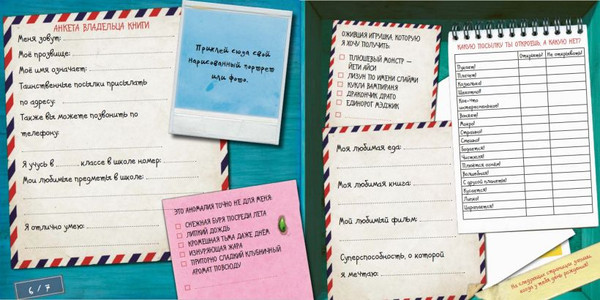 АНКЕТА ВЛАДЕЛЬЦА КНИГИ
Меня зовут:
Моё прозвище:
Моё имя означает:
Таинственные посылки присылать
по адресу:
Также вы можете позвонить по
телефону:
Я учусь в классе в школе номер:
Мои любимые предметы в школе:
Я отлично умею:
Приклей сюда свой
нарисованный портрет
или фото.
ЭТО АНОМАЛИЯ ТОЧНО НЕ ДЛЯ МЕНЯ:
СНЕЖНАЯ БУРЯ ПОСРЕДИ ЛЕТА
ЛИПКИЙ ДОЖДЬ
КРОМЕШНАЯ ТЬМА ДАЖЕ ДНЁМ
ИЗНУРЯЮЩАЯ ЖАРА
ПРИТОРНО СЛАДКИЙ КЛУБНИЧНЫЙ
АРОМАТ ПОВСЮДУ
6 / 7
ОЖИВШАЯ ИГРУШКА, КОТОРУЮ
Я ХОЧУ ПОЛУЧИТЬ:
ПЛЮШЕВЫЙ МОНСТР —
ЙЕТИ АЙСИ
ЛИЗУН ПО ИМЕНИ СЛАЙМИ
КУКЛА ВАМПИРАНЯ
ДРАКОНЧИК ДРАГО
ЕДИНОРОГ МЭДЖИК
Моя любимая еда:
Моя любимая книга:
Мой любимый фильм:
Суперспособность, о которой
я мечтаю:
КАКУЮ ПОСЫЛКУ ТЫ ОТКРОЕШЬ, А КАКУЮ НЕТ?
Открыть! Не открывать!
Пугает!
Плачет!
Казалось!
Кое-что
интересненькое!
Воняет!
Мокро!
Страшно!
Стонет!
Кусается!
Липко!
Царапается!
На следующей странице запиши,
когда у тебя день рождения!